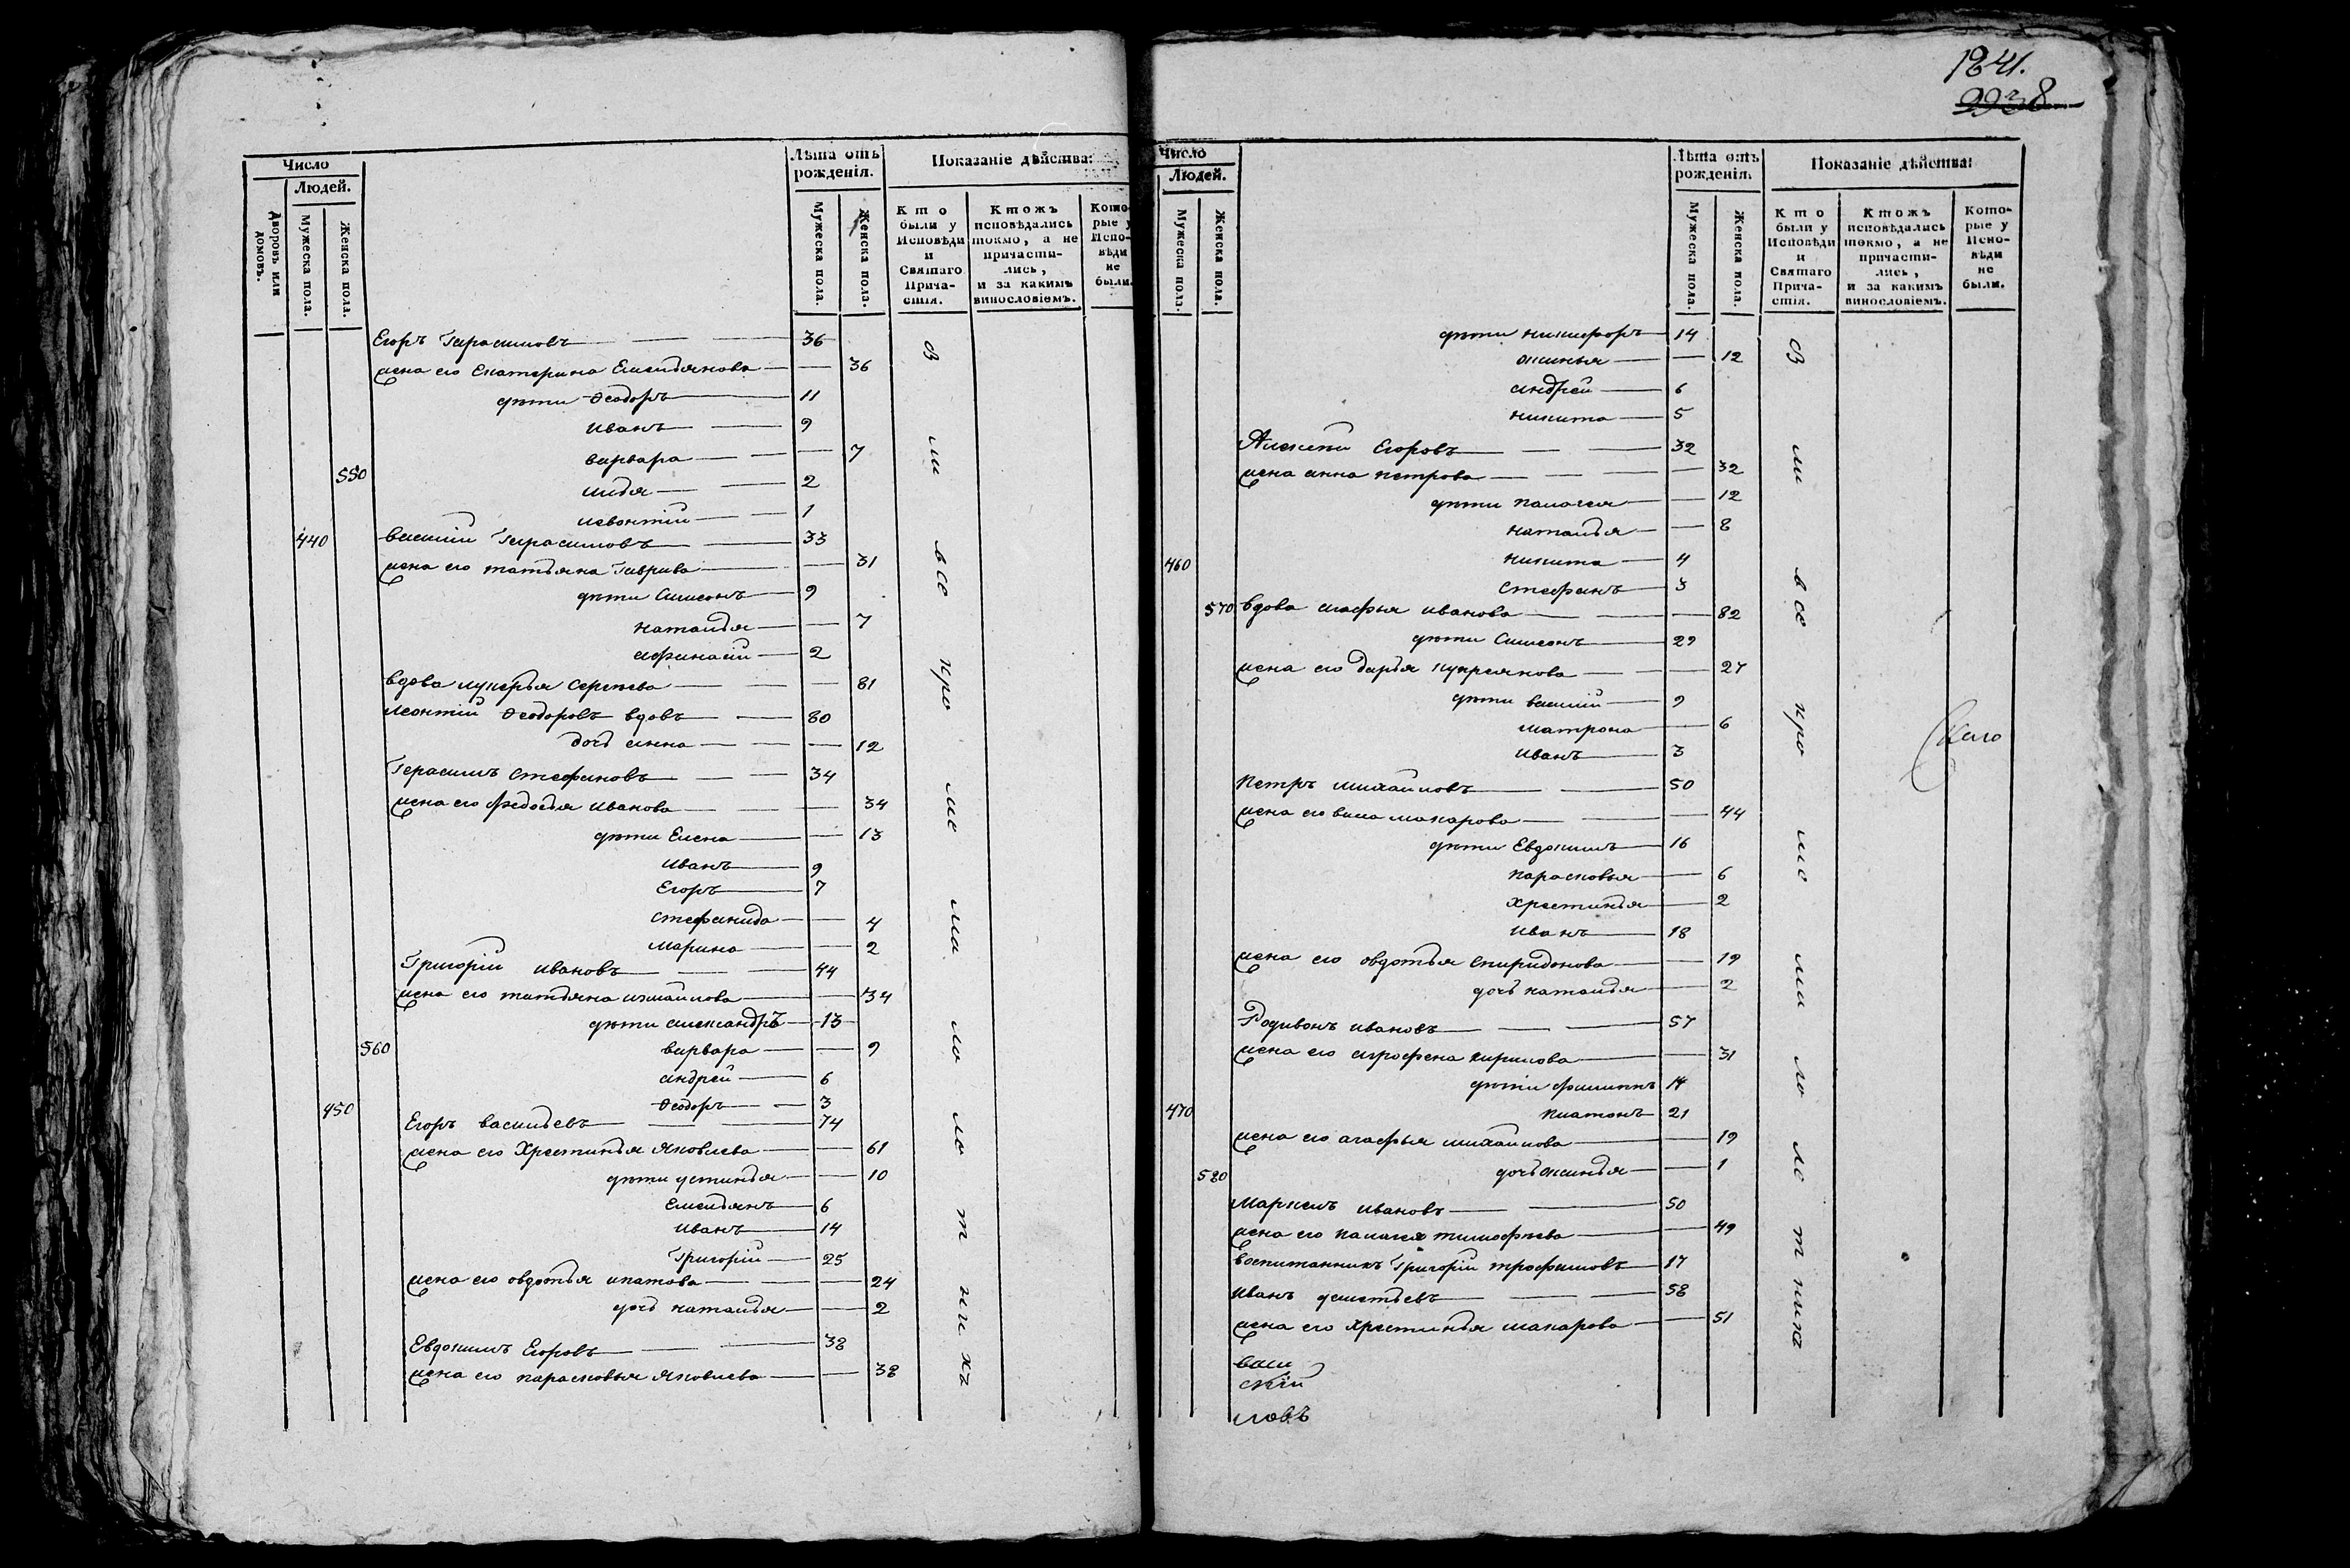 Число
Людей.
Дворовъ или домовъ.
Мужеска пола.
Женска пола.
Лѣта отъ рожденія.
Мужеска пола.
Женска пола.
Показаніе дѣйства:
Кто были у Исповѣди и Святаго Прича-стія.
Ктожъ исповѣдались токмо, а не причасти-лись, и за какимъ винословіемъ.
Кото-рые у Испо-вѣди не были.
Егоръ Герасимовъ 36
жена его Екатерина Емельянова 36
дѣти Ѳеодоръ 11
Иванъ 9
варвара 7
550
илья 2
левонтій 1
440 василій Герасимовъ 33
жена его татьяна Гаврива 31
дѣти Симеонъ 9
наталья 7
афанасій 2
вдова лукерья Сергѣева 81
леонтій Ѳеодоровъ вдовъ 80
дочь анна 12
Герасимъ стефановъ 34
жена его федосья иванова 34
дѣти Елена 13
иванъ 9
Егоръ 7
стефанида 4
марина 2
Григорій ивановъ 44
жена его татьяна измайлова 34
дѣти александръ 13
560 варвара 9
андрей 6
450 Ѳеодоръ 3
Егоръ васильевъ 74
жена его Хрестинья Яковлева 61
дѣти устинья 10
Емельянъ 6
иванъ 14
Григорій 25
жена его овдотья ипатова 24
дочь наталья 2
Евдокимъ Егоровъ 38
жена его парасковья Яковлева 38
1841.
2938
Число
Людей.
Мужеска пола.
Женска пола.
Лѣта отъ рожденія.
Мужеска пола.
Женска пола.
Показаніе дѣйства:
Кто были у Исповѣди и Святаго Прича-стія.
Ктожъ исповѣдались токмо, а не причасти-лись, и за какимъ винословіемъ.
Кото-рые у Испо-вѣди не были.
дѣти никифоръ 14
аксинья 12
андрей 6
никита 5
Алексѣй Егоровъ 32
жена анна петрова 32
дѣти палагея 12
наталья 8
460 никита 4
стефанъ 3
570 вдова агафья иванова 82
дѣти Симеонъ 29
жена его дарья купреянова 27
дѣти василій 9
матрона 6
иванъ 3
петръ михайловъ 50
жена его васа макарова 44
дѣти Евдокимъ 16
парасковья 6
хрестинья 2
иванъ 18
жена его овдотья спиридонова 19
дочь наталья 2
Родивонъ ивановъ 57
жена его аграфена кирилова 31
дѣти филиппъ 14
470 платонъ 21
жена его агафья михайлова 19
580 дочь аксинья 1
маркелъ ивановъ 50
жена его палагея тимофѣева 49
воспитанникъ Григорій трофимовъ 17
иванъ дементьевъ 58
жена его хрестинья макарова 51
васи
скій
ловъ